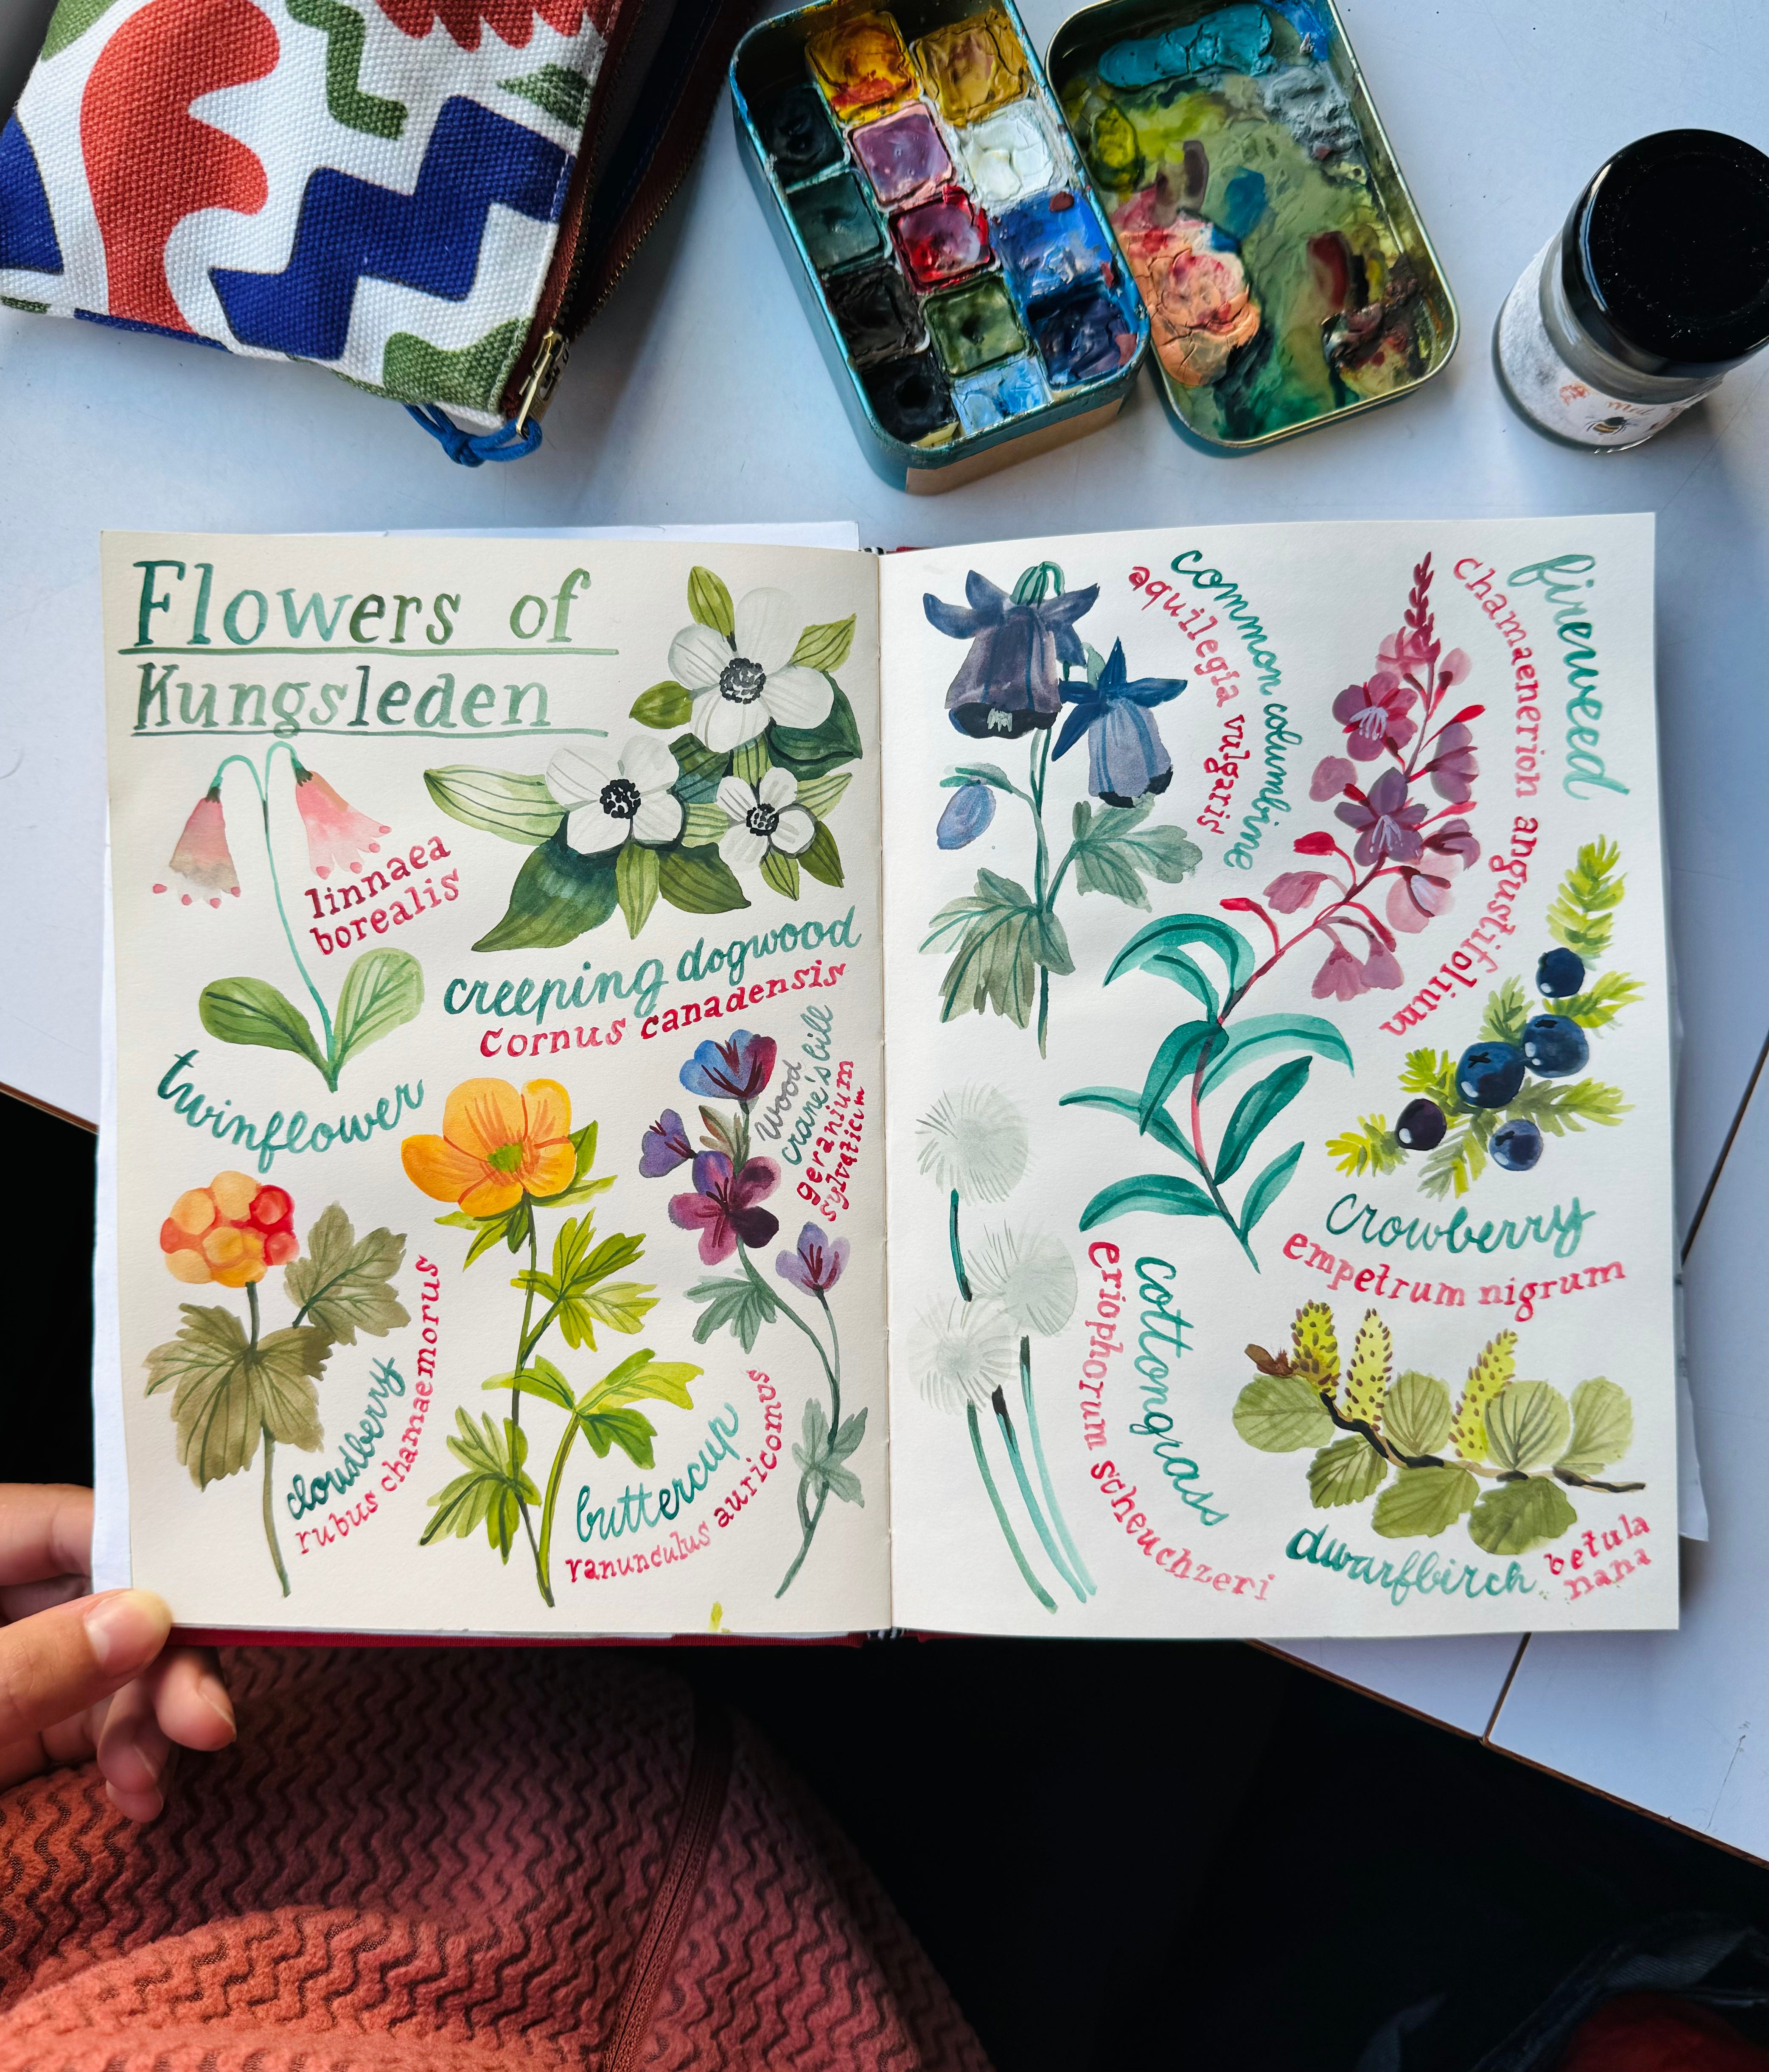 Flowers of
Kungsleden
linnaea
borealis
twinflower
creeping dogwood
cornus canadensis
wood
crane's bill
geranium
sylvaticum
cloudberry
rubus chamaemorus
buttercup
ranunculus auricomus
common columbine
aquilegia vulgaris
fireweed
chamaenerion angustifolium
crowberry
empetrum nigrum
cottongrass
eriophorum scheuchzeri
dwarfbirch
betula
nana